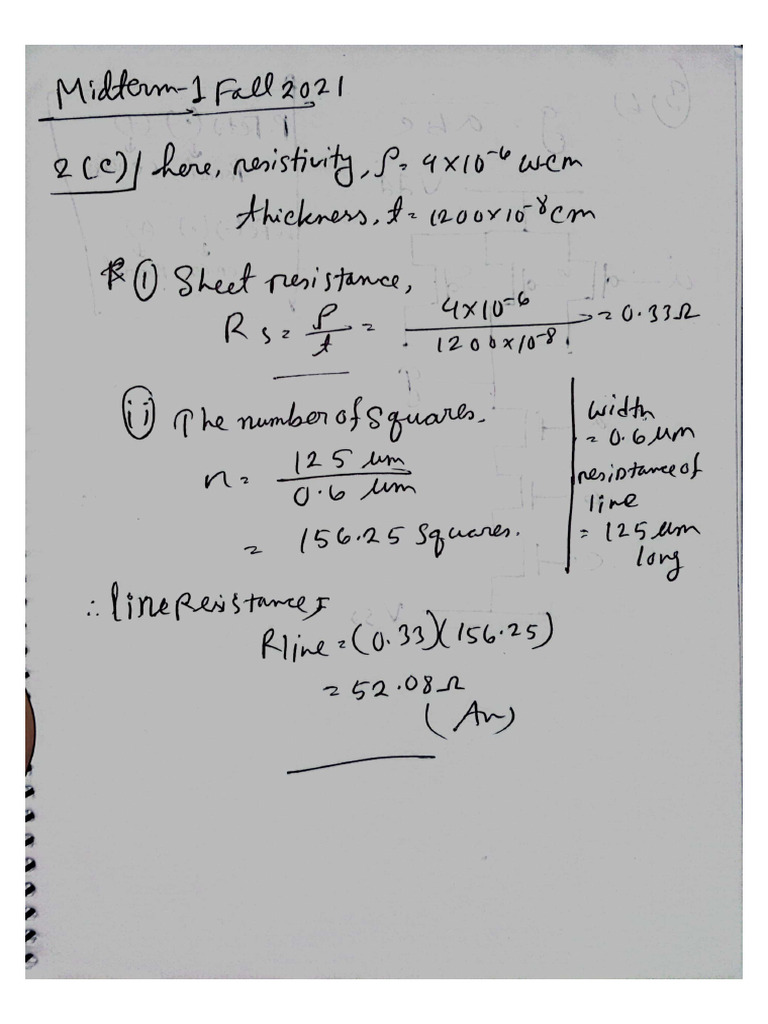 Midterm-1 Fall 2021
2(c)/ here, resistivity, ρ= 4×10⁻⁶ wcm
thickness, t= 1200×10⁻⁸cm
① Sheet resistance,
Rs= ρ/t = 4×10⁻⁶ / 1200×10⁻⁸ = 0.33Ω
ⅱ The number of Squares.
n= 125 um / 0.6 um
= 156.25 Squares.
width
= 0.6 um
resistance of
line
= 125um
long
∴ line Resistances
Rline=(0.33)(156.25)
=52.08Ω
(An)